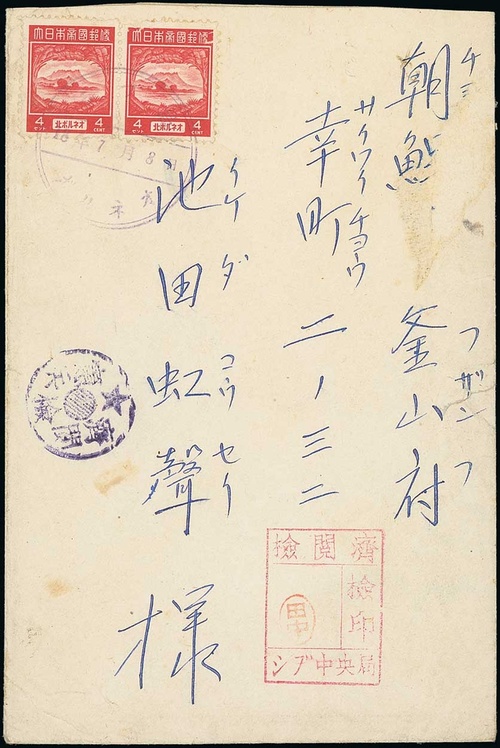 大日本帝國郵便
大日本帝國郵便
4
セント
北ボルネオ
4
CENT
4
セント
北ボルネオ
4
CENT
年7月8日
朝鮮 釜山府
フザンフ
幸町 二ノ三二
サイワイチョウ
池田虹聲 様
イケダ コウセイ
檢閲濟
檢印
シブ中央局